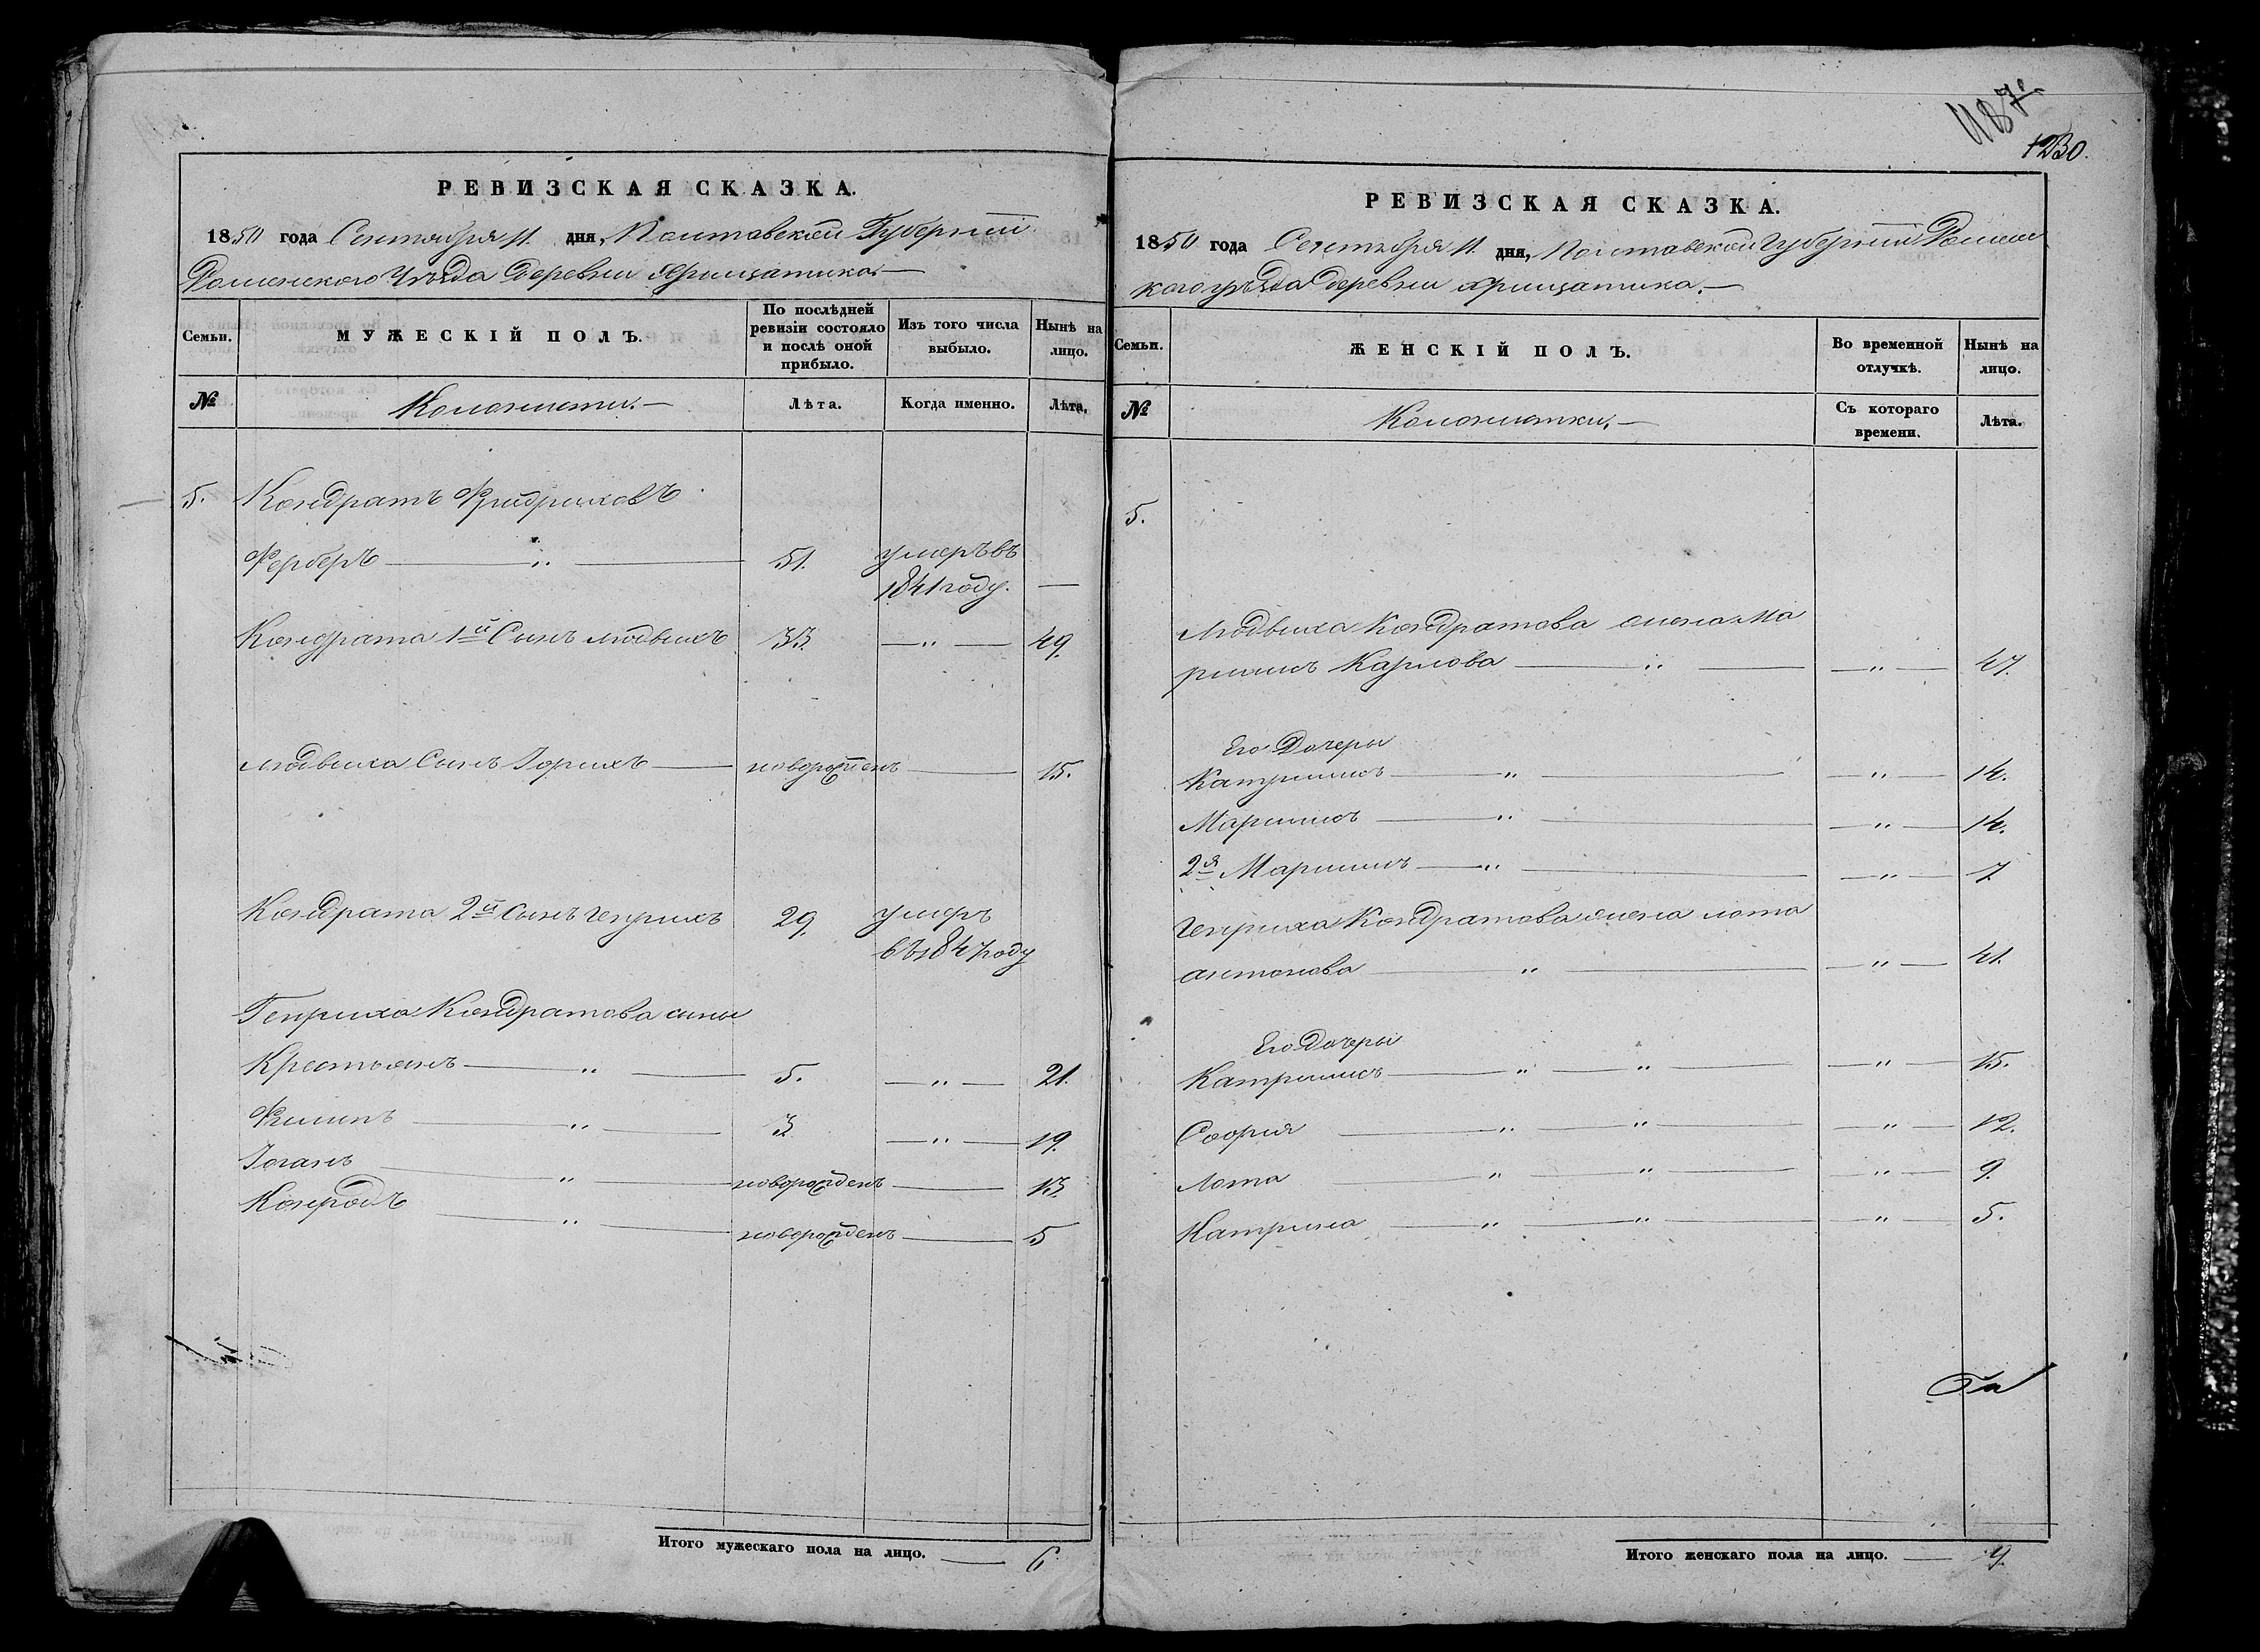 РЕВИЗСКАЯ СКАЗКА.
1850 года Сентября 11. дня, Полтавской Губерніи
Роменского Уѣзда деревни
Семьи.
МУЖЕСКІЙ ПОЛЪ.
По послѣдней ревизіи состояло и послѣ оной прибыло.
Изъ того числа выбыло.
Нынѣ на лицо.
№
Колонисты.—
Лѣта.
Когда именно.
Лѣта.
5. Кондратъ Фридриховъ
Ферберъ — „ — 51. умеръ въ
1841 году. —
Кондрата 1й Сынъ Людвихъ 33. — „ — 49.
Людвиха Сынъ Іорихъ — новорожденъ — 15.
Кондрата 2й Сынъ Генрихъ 29. умеръ
въ 1847 году
Генриха Кондратова сины
Крестьянъ — „ — 5. — „ — 21.
Филипъ — „ — 3. — „ — 19.
Іоганъ — „ — новорожденъ — 13.
Конрадъ — „ — новорожденъ — 5
Итого мужескаго пола на лицо. — 6.
1187
1230.
РЕВИЗСКАЯ СКАЗКА.
1850 года Сентября 11. дня, Полтавской Губерніи Роменс
кого уѣзда деревни
Семьи.
ЖЕНСКІЙ ПОЛЪ.
Во временной отлучкѣ.
Нынѣ на лицо.
№
Колонистки.—
Съ котораго времени.
Лѣта.
5.
Людвиха Кондратова жена Ма
рилисъ Карлова — „ — — „ — 47.
Его Дочеры
Катрилисъ — „ — — „ — 14.
Марилисъ — „ — — „ — 14.
2я Марилисъ — „ — — „ — 7.
Генриха Кондратова жена Лота
Антонова — „ — — „ — 41.
Его Дочеры
Катрилисъ — „ — „ — — „ — 15.
Софія — „ — „ — — „ — 12.
Лота — „ — „ — — „ — 9.
Катрина — „ — „ — — „ — 5.
Итого женскаго пола на лицо. — 9.